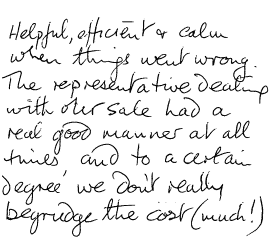 Helpful, efficient & calm
when things went wrong.
The representative dealing
with our sale had a
real good manner at all
times and to a certain
degree we don't really
begrudge the cost (much!)